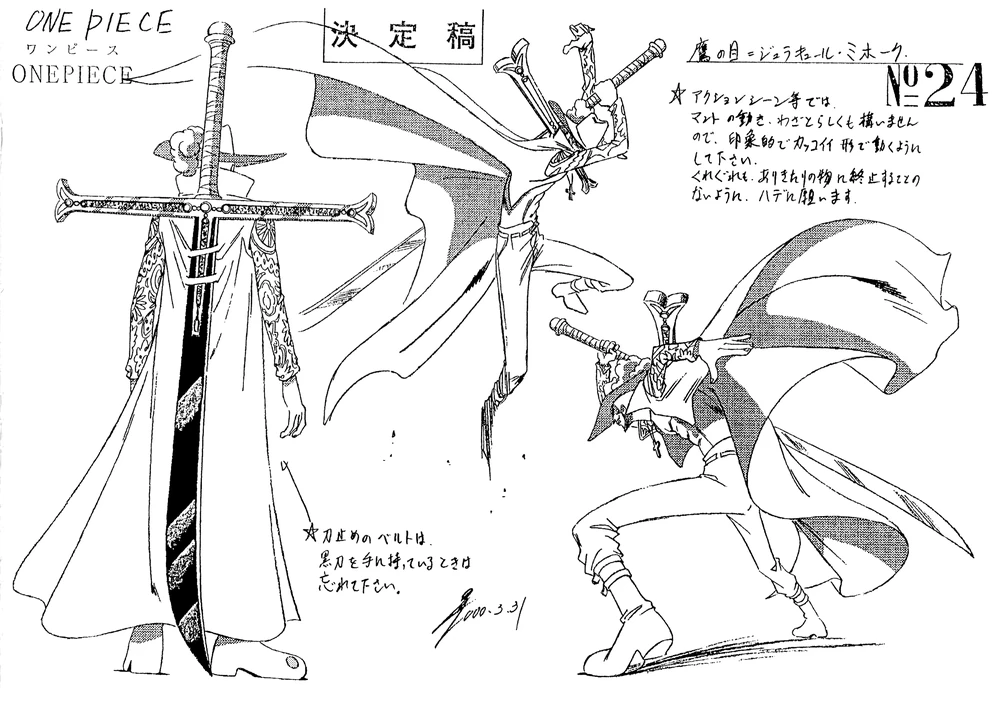 ONE PIECE
ワンピース
ONEPIECE
決定稿
鷹の目=ジュラキュール・ミホーク.
No 24
☆アクションシーン等では、
マントの動き、わざとらしくも構いません
ので、印象的でカッコイイ形で動くように
して下さい。
くれぐれも、ありきたりの物に終止することの
ないように、ハデに願います.
☆刀止めのベルトは、
黒刀を手に持っているときは
忘れて下さい。
2000.3.31